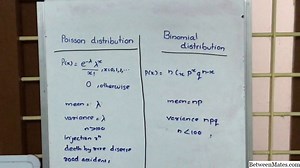 Poisson distribution
Binomial
distribution
P(x) = e^-λ λ^x / x! , x=0,1,2,...
0 , otherwise
P(x) = n Cx p^x q^n-x
mean = λ
variance = λ
n>100
injection
death by rare disease
road accidens,
mean = np
variance npq
n<100,
BetweenMates.com